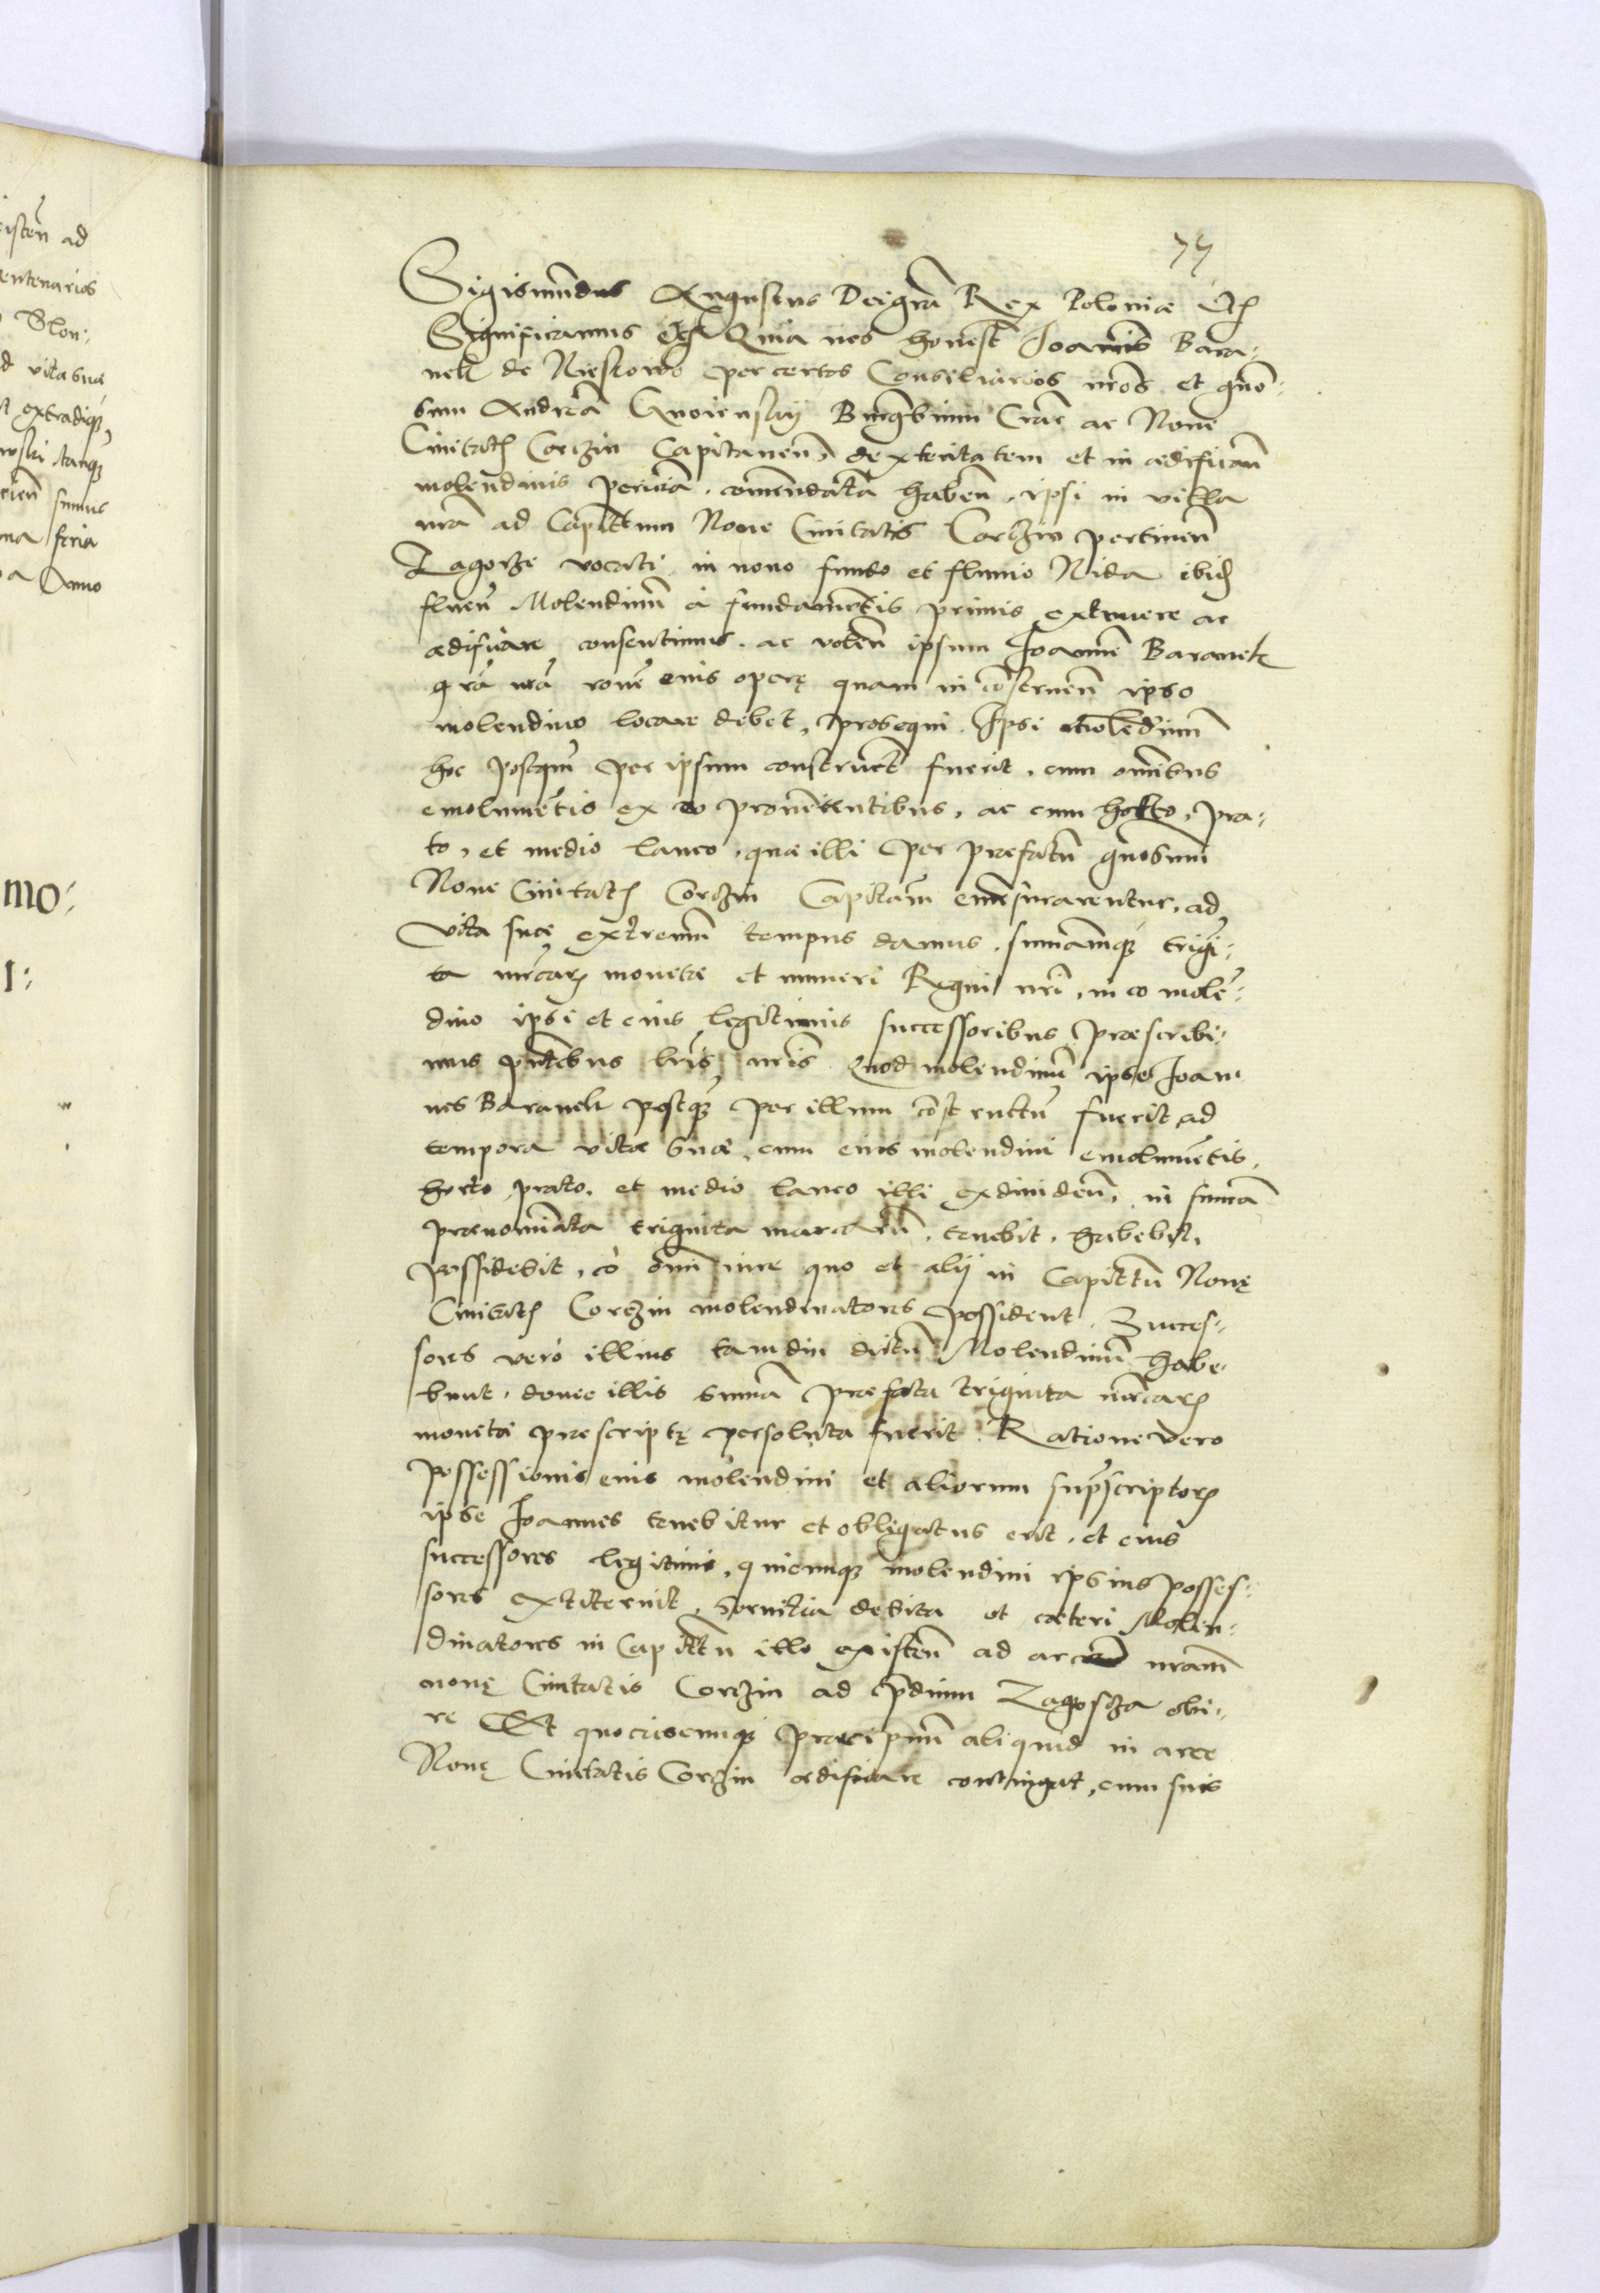 75
Sigismundus Augustus Dei grã Rex Poloniæ Etc
Significamus Etc Quia nos honest Joannis Bara-
nek de Nieskowo per certos Consiliarios nr̃os et gño-
sum Andreã Gnoiensky Burgrabium Crac̃ ac Nove
Civitatis Corczin Capitaneũ, dexteritatem et in ædificañ
molendinis peritiã, comẽndatã habeñ, ipsi in villa
nrã ad Capittum Nove Civitatis Corczin pertineñ
Zagorze vocati in novo fundo et fluvio Nida ibid
flueñ Molendinũ à fundamẽtis primis extruere ac
ædificare consentimus, ac voleñ ipsum Joannẽ Baranek
grã nrã rõne eius operę quam in cõstrueñ ipso
molendino locare debet, prosequi. Ipsi molendinũ
hoc postqũ per ipsum construct fuerit, cum omĩbus
emolumẽtis ex eo provenientibus, ac cum horto, pra-
to, et medio laneo, quæ illi per præfatũ gñosum
Nove Civitatis Corczin Capitaneũ emẽsurarentur, ad
vitæ suæ extremũ tempus damus, sum̃amq̃ trigĩ-
ta mr̃car monetæ et numeri Regni nr̃i, in eo molẽ-
dino ipsi et eius legitimis successoribus præscribi-
mus pñtibus lr̃is nr̃is. Quod molendinũ ipse Joan-
nes Baranek postq̃ per illum cõstructũ fuerit, ad
tempora vitæ suæ, cum eius molendini emolumẽtis,
horto, prato, et medio laneo illi exdivideñ, in sum̃ã
prænomĩata triginta marcarũ, tenebit, habebit,
possidebit, eo õmi iure quo et alij in Capittũ Novę
Civitatis Corczin molendinatores possident. Succes-
sores verò illius tamdiu dictũ Molendinũ habe-
bunt, donec illis sum̃a præfata triginta mr̃car
monetæ præscriptę persoluta fuerit. Ratione vero
possessionis eius molendini et aliorum suprascriptor
ipse Joannes tenebitur et obligatus erit, et eius
successores legitimi, quicumq̃ molendini ipsius posses-
sores extiterint, servitia debita ut cæteri Molen-
dinatores in Capittũ illo existeñ ad arcem nram̃
novę Civitatis Corczin ad prædium Zagosczja obi-
re Et quociescumq̃ præcipuũ aliquid in arce
Novę Civitatis Corczin ædificare contingat, cum suis